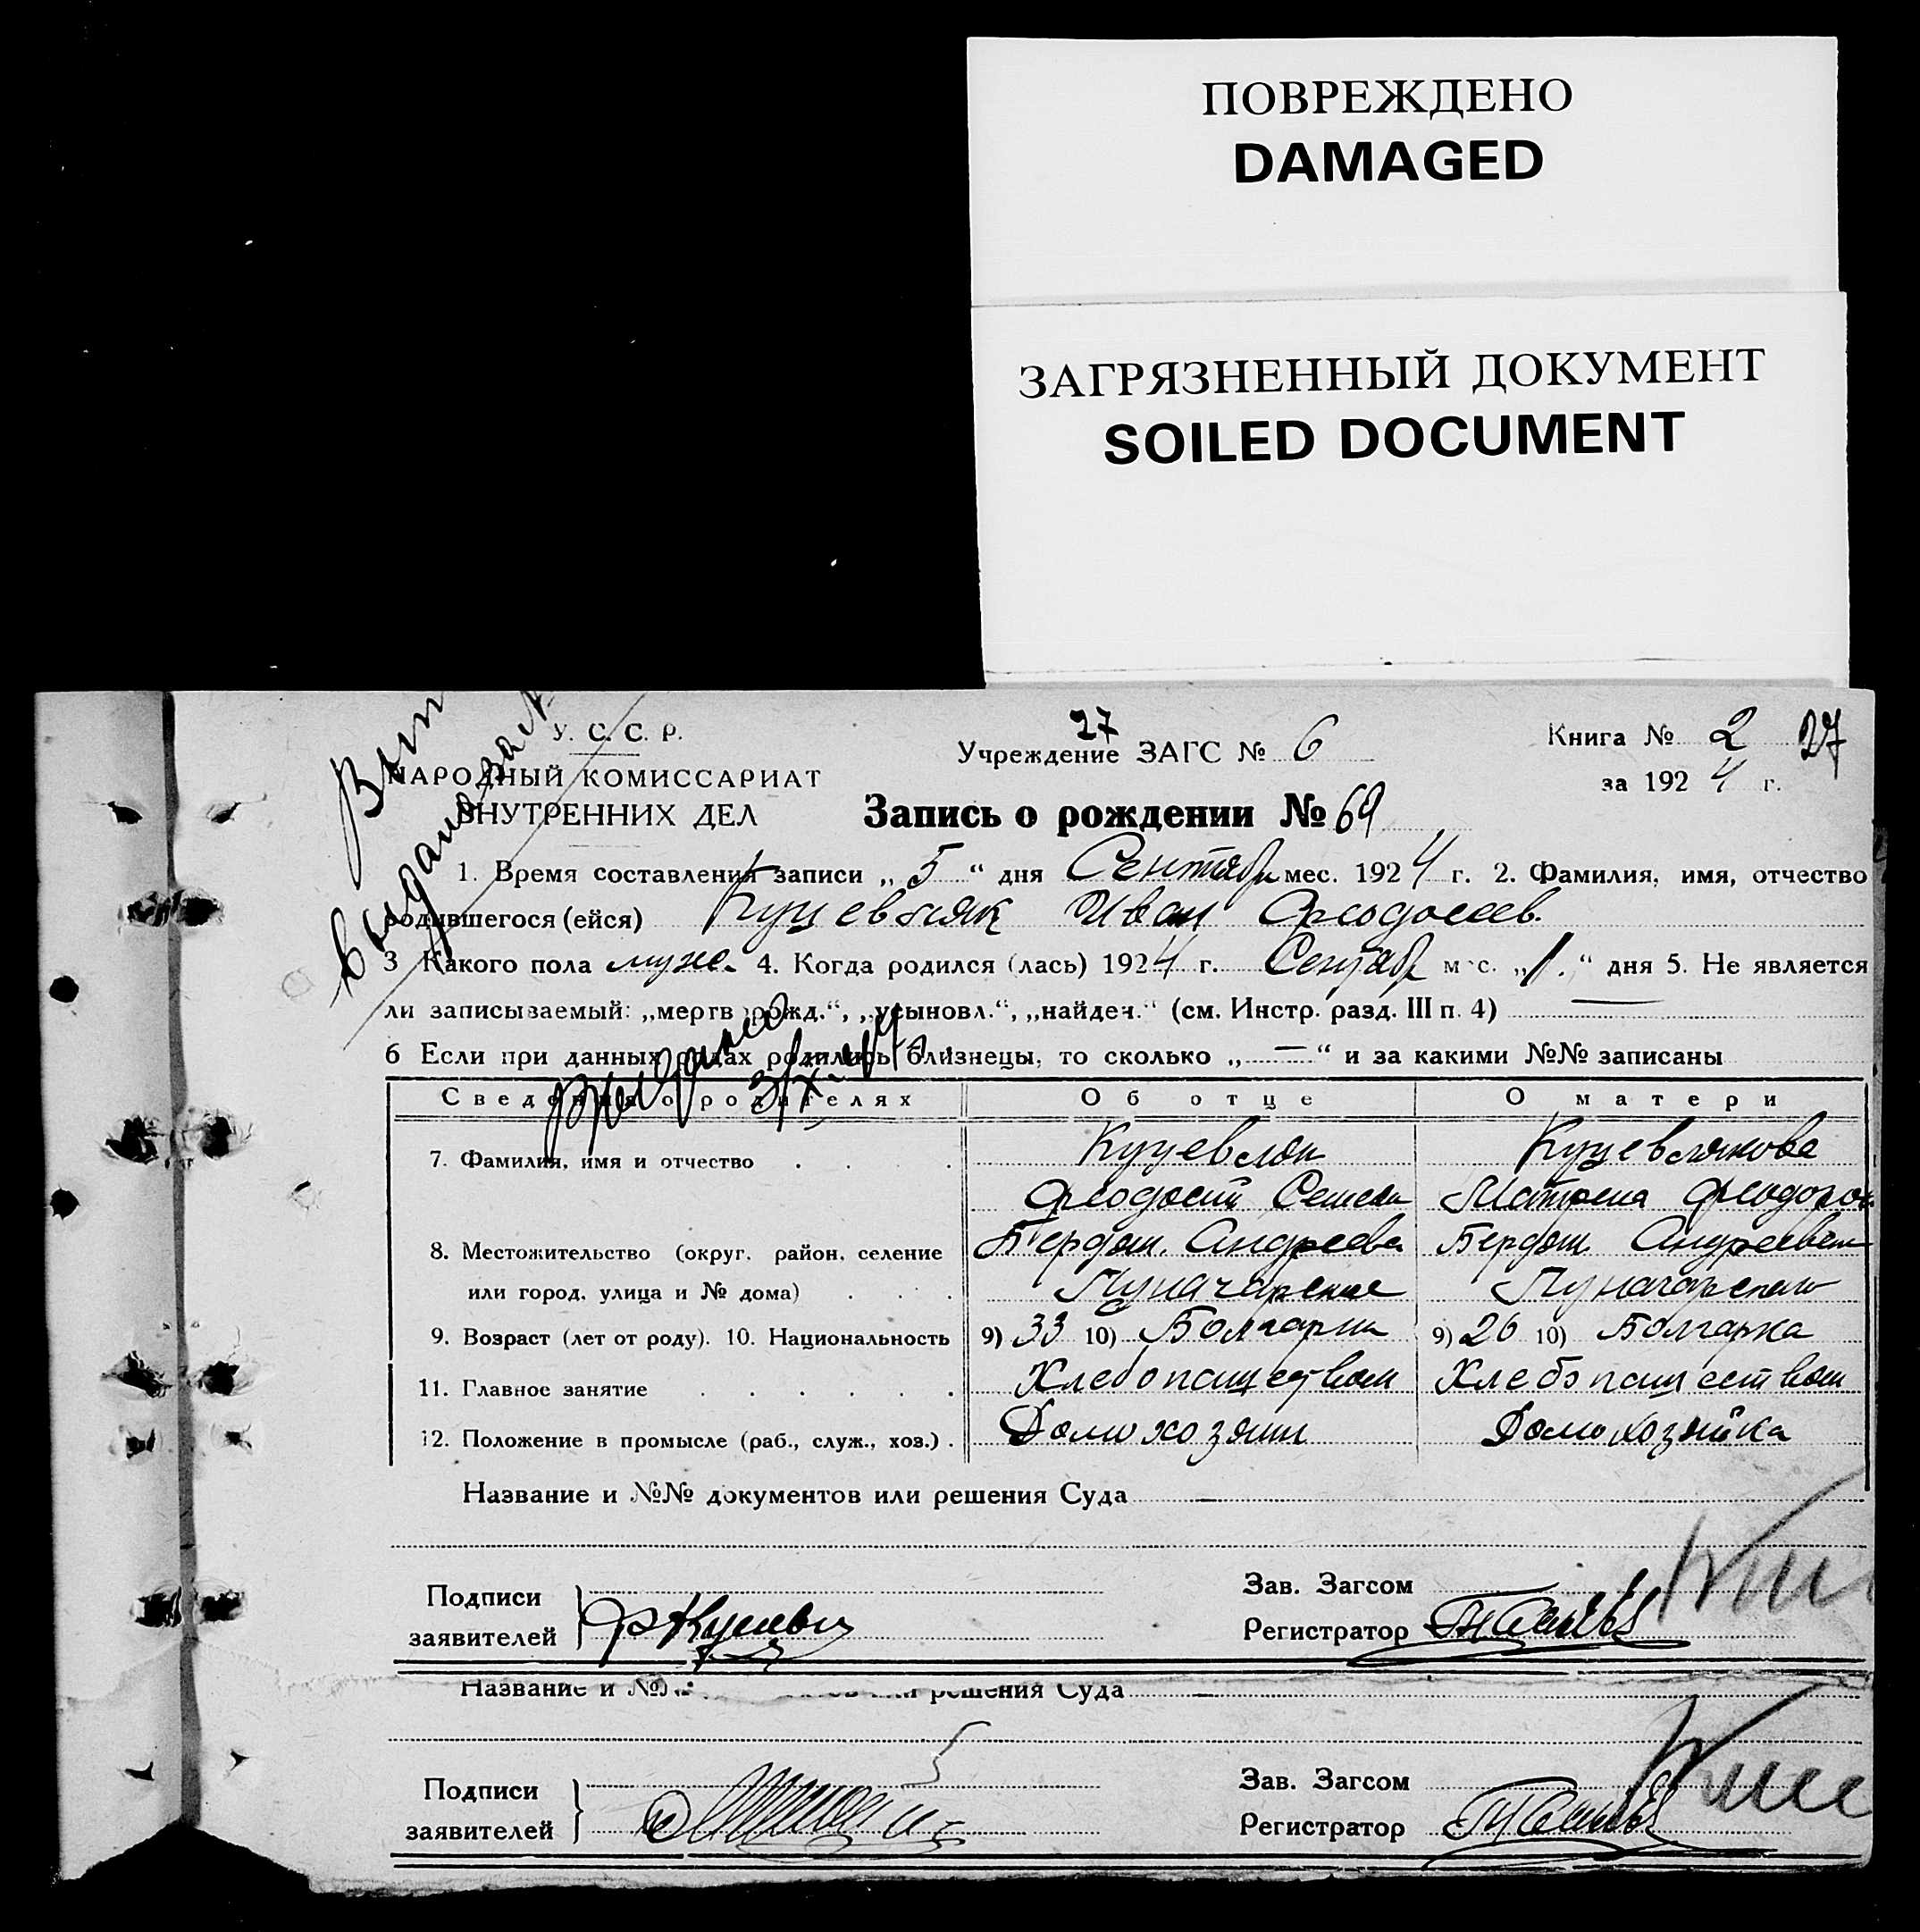 ПОВРЕЖДЕНО
DAMAGED
ЗАГРЯЗНЕННЫЙ ДОКУМЕНТ
SOILED DOCUMENT
У. С. С. Р.
НАРОДНЫЙ КОМИССАРИАТ
ВНУТРЕННИХ ДЕЛ
27
Учреждение ЗАГС № 6
Книга № 2 27
за 1924 г.
Запись о рождении № 69
1. Время составления записи „5“ дня Сентябр мес. 1924 г. 2. Фамилия, имя, отчество
родившегося (ейся) Иван Феодосеев.
3 Какого пола муже. 4. Когда родился (лась) 1924 г. Сентябр мес. „1.“ дня 5. Не является
ли записываемый: „мертворожд.“, „усыновл.“, „найден.“ (см. Инстр. разд. III п. 4) —
6 Если при данных родах родились близнецы, то сколько „—“ и за какими №№ записаны
Сведения о родителях Об отце О матери
7. Фамилия, имя и отчество Куцевляк Куцевлякова
Феодосий Семен Матрена Феодоров
8. Местожительство (округ, район, селение Бердян. Андреева Бердян. Андреевск
или город, улица и № дома) Луначарское
9. Возраст (лет от роду). 10. Национальность 9) 33 10) Болгарин 9) 26 10) Болгарка
11. Главное занятие Хлебопашеством Хлебопашеством
12. Положение в промысле (раб., служ., хоз.) . Домохозяин Домохозяйка
Название и №№ документов или решения Суда —
Подписи
заявителей
Зав. Загсом
Регистратор
Название и №№ решения Суда —
Подписи
заявителей
Зав. Загсом
Регистратор